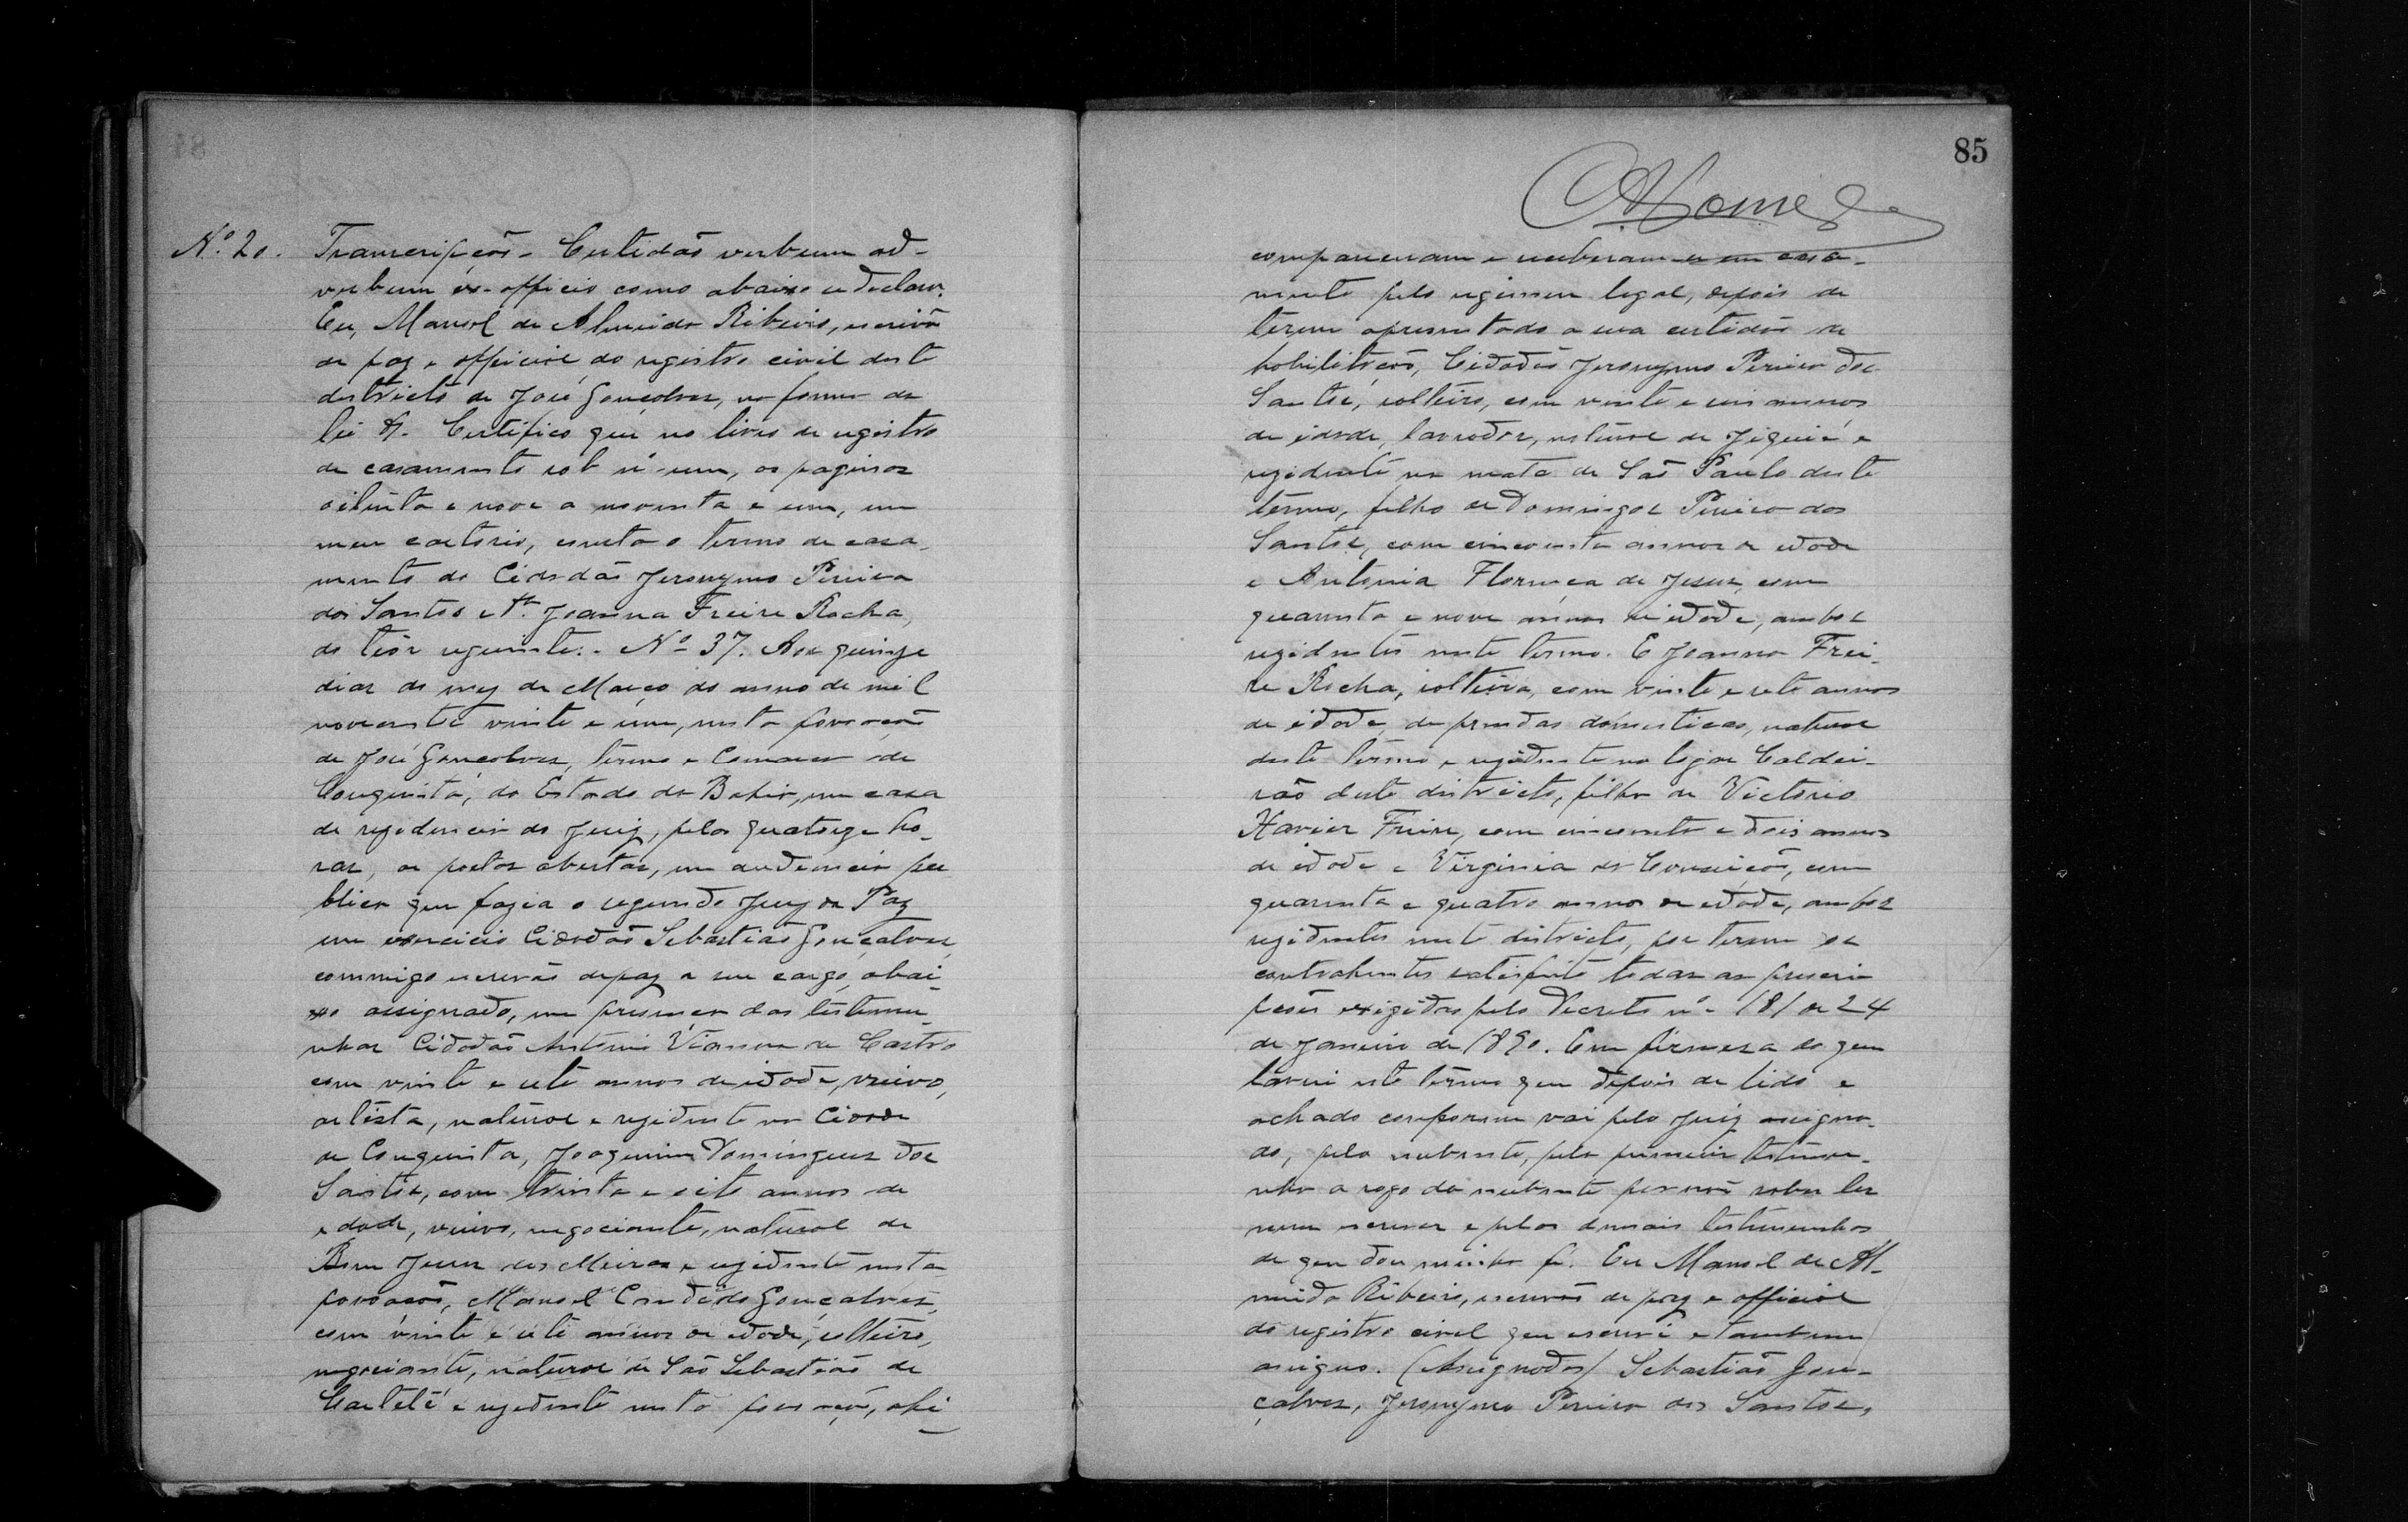 Nº 20. Transcripção - Certidão verbum ad-
verbum ex-officio como abaixo se declara.
Eu, Manoel de Almeida Ribeiro, escrivão
de paz e official do registro civil deste
districto de José Gonçalves, na forma da
lei &. Certifico que no livro de registro
de casamento sob nº um, as paginas
oitenta e nove a noventa e um, em
meu cartorio, consta o termo de casa-
mento do Cidadão Jeronymo Pereira
dos Santos e Joanna Freire Rocha,
do teor seguinte:- Nº 37. Aos quinze
dias do mez de Março do anno de mil
novecentos vinte e um, nesta povoação
de José Gonçalves, termo e Comarca de
Conquista, do Estado da Bahia, em casa
de rezidencia do Juiz, pelas quatorze ho-
ras, as portas abertas, em audiencia pu
blica que fazia o segundo Juiz de Paz
em exercicio Cidadão Sebastião Gonçalves,
commigo escrivão de paz a seu cargo, abai-
xo assignado, em presença das testemu-
nhas Cidadão Antonio Vianna de Castro
com vinte e sete annos de idade, viuvo,
artista, natural e rezidente na Cidade
de Conquista, Joaquim Domingues dos
Santos, com trinta e oito annos de
edade, viuvo, negociante, natural de
Bom Jesus dos Meiras e rezidente nesta
povoação, Manoel Candido Gonçalves,
com vinte e sete annos de edade, solteiro,
negociante, natural de São Sebastião de
Caeteté e rezidente nesta povoação, ahi
85
comparceram e receberam-se em casa-
mento pelo regimem legal, depois de
terem apresentado a sua certidão de
habilitação, Cidadão Jeronymo Pereira dos
Santos, solteiro, com vinte e seis annos
de idade, lavrador, natural de Jiquié e
rezidente na mata de São Paulo deste
termo, filho de Domingos Pereira dos
Santos, com cincoenta annos de edade
e Antonia de Jesus, com
quarenta e nove annos de idade, ambos
rezidentes neste termo. E Joanna Frei-
re Rocha, solteira, com vinte e sete annos
de idade, de prendas domesticas, natural
deste termo e rezidente no logar Caldei-
rão deste districto, filha de Victorio
Xavier Freire, com cincoenta e dois annos
de idade e Virginia da Conceição, com
quarenta e quatro annos de edade, ambos
rezidentes neste districto, por terem os
contrahentes satisfeito todas as prescri
pções exigidas pelo Decreto nº 181 de 24
de Janeiro de 1890. Em firmeza do que
lavrei este termo que depois de lido e
achado conforme vai pelo Juiz assigna-
do, pelo nubente, pela primeira testemu-
nha a rogo da nubente por não saber ler
nem escrever e pelas demais testemunhas
de que dou minha fé. Eu Manoel de Al-
meida Ribeiro, escrivão de paz e official
do registro civil que escrevi e tambem
assigno. (Assignados) Sebastião Gon-
çalves, Jeronymo Pereira dos Santos,